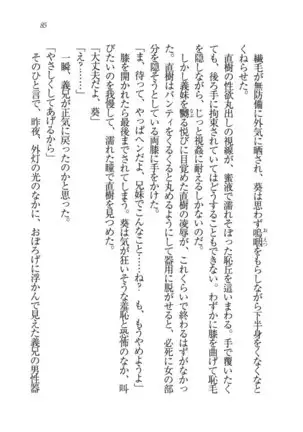 繊毛が無防備に外気に晒され、葵は思わず嗚咽をもらしながら下半身をくなくなと
くねらせた。
直樹の性欲丸出しの視線が、蜜液で濡れそぼった恥丘を這いまわる。手で覆いたく
ても、後ろ手に拘束されていてはどうすることもできない。わずかに膝を曲げて恥毛
を隠しながら、じっと視姦に耐えるしかないのだ。
しかし義妹を嬲る悦びに目覚めた直樹の凌辱が、これくらいで終わるはずがなかっ
た。直樹はパンティをくるくると丸めるようにして器用に脱がせると、必死に女の部
分を隠そうとしている両膝に手をかけた。
「ま、待って……やっぱヘンだよ、兄妹でこんなこと……ね？　も、もうやめようよ」
膝を開かれたら最後までされてしまう。葵は気が狂いそうな羞恥と恐怖のなか、叫
びたいのを我慢して、濡れた瞳で直樹を見つめた。
「大丈夫だよ、葵」
「え？……」
一瞬、義兄が正気に戻ったのかと思った。
「やさしくしてあげるから」
そのひと言で、昨夜、外灯の光のなかに、おぼろげに浮かんで見えた義兄の男性器
85